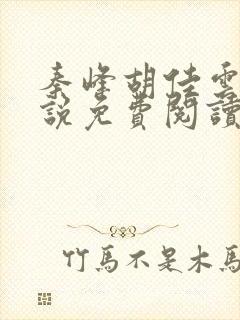 秦峰胡佳雲
說免費閱讀
竹馬不是木馬